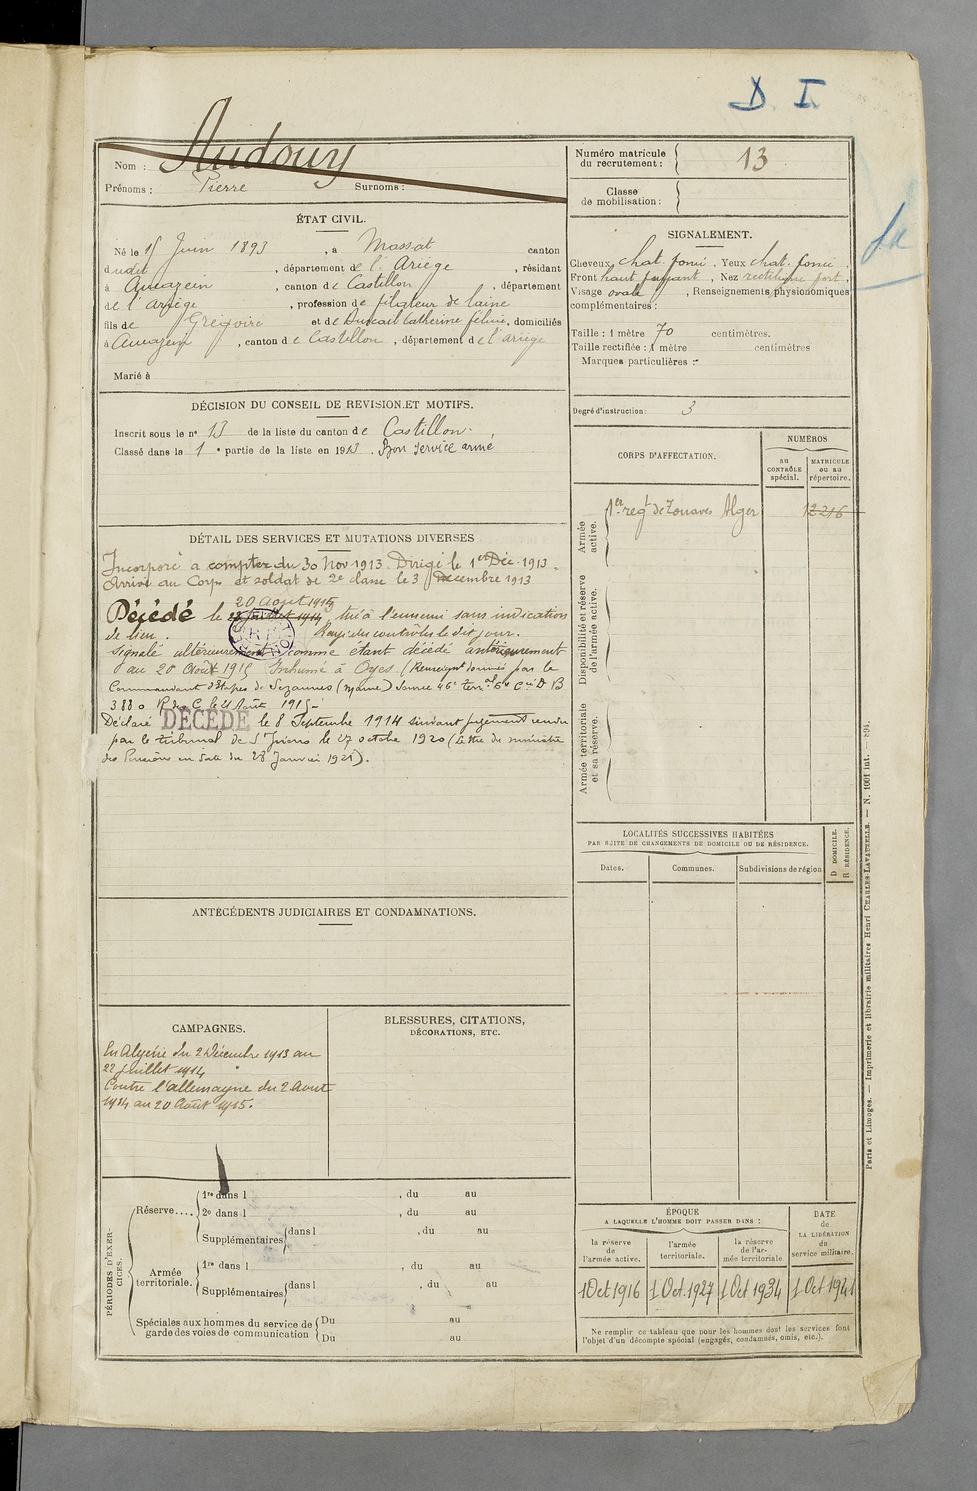 D. I.
Audouy
Nom :
Prénoms : Pierre Surnoms :
Numéro matricule du recrutement : 13
Classe de mobilisation :
ÉTAT CIVIL.
Né le 15 Juin 1893 , à Massat canton
dudit , département de l'Ariège , résidant
à , canton de Castillon , département
de l'ariège , profession de filateur de laine
fils de Grégoire et de Catherine , domiciliés
à , canton de Castillon , département de l'ariège
Marié à
SIGNALEMENT.
Cheveux chat. foncé , Yeux chat. foncé ,
Front haut fuyant , Nez rectiligne fort ,
Visage ovale , Renseignements physionomiques
complémentaires :
Taille : 1 mètre 70 centimètres.
Taille rectifiée : 1 mètre centimètres
Marques particulières :
Degré d'instruction : 3
DÉCISION DU CONSEIL DE REVISION ET MOTIFS.
Inscrit sous le n° 13 de la liste du canton de Castillon.
Classé dans la 1e partie de la liste en 1913. Bon service armé
DÉTAIL DES SERVICES ET MUTATIONS DIVERSES
Incorporé à compter du 30 Nov 1913. Dirigé le 1er Déc. 1913.
Arrivé au Corps et soldat de 2e classe le 3 Décembre 1913
20 août 1915
Décédé le 22 juillet 1914 tué à l'ennemi sans indication
de lieu. Rayé des contrôles le dit jour.
Signalé ultérieurement comme étant décédé antérieurement
au 20 Août 1915 Inhumé à Oyes (Renseignt donnés par le
Commandant d'Etapes de Sézannes (Marne) Service 46e terr al 6e Cie D B
3880 R du C le 21 Août 1915-
Déclaré DÉCÉDÉ le 8 Septembre 1914 suivant jugement rendu
par le tribunal de St Girons le 27 octobre 1920 (Lettre du ministre
des Pensions en date du 28 Janvier 1921).
CORPS D'AFFECTATION.
NUMÉROS
au CONTRÔLE spécial.
MATRICULE ou au répertoire.
Armée active.
1er regt de Zouaves Alger
12216
Disponibilité et réserve de l'armée active.
Armée territoriale et sa réserve.
LOCALITÉS SUCCESSIVES HABITÉES
PAR SUITE DE CHANGEMENTS DE DOMICILE OU DE RÉSIDENCE.
Dates.
Communes.
Subdivisions de région
D DOMICILE.
R RÉSIDENCE.
ANTÉCÉDENTS JUDICIAIRES ET CONDAMNATIONS.
CAMPAGNES.
En Algérie du 2 Décembre 1913 au
22 juillet 1914
Contre l'allemagne du 2 Août
1914 au 20 Août 1915.
BLESSURES, CITATIONS,
DÉCORATIONS, ETC.
PÉRIODES D'EXERCICES.
Réserve....
1re dans l , du au
2e dans l , du au
Supplémentaires dans l , du au
Armée territoriale.
1re dans l , du au
Supplémentaires dans l , du au
Spéciales aux hommes du service de
garde des voies de communication
Du au
Du au
ÉPOQUE
A LAQUELLE L'HOMME DOIT PASSER DANS :
la réserve de l'armée active.
l'armée territoriale.
la réserve de l'armée territoriale.
DATE de LA LIBÉRATION du service militaire.
1 Oct 1916
1 Oct. 1927
1 Oct 1934
1 Oct 1941
Ne remplir ce tableau que pour les hommes dont les services font
l'objet d'un décompte spécial (engagés, condamnés, omis, etc.).
Paris et Limoges. — Imprimerie et librairie militaires Henri CHARLES-LAVAUZELLE. — N. 1001 int. — 894.